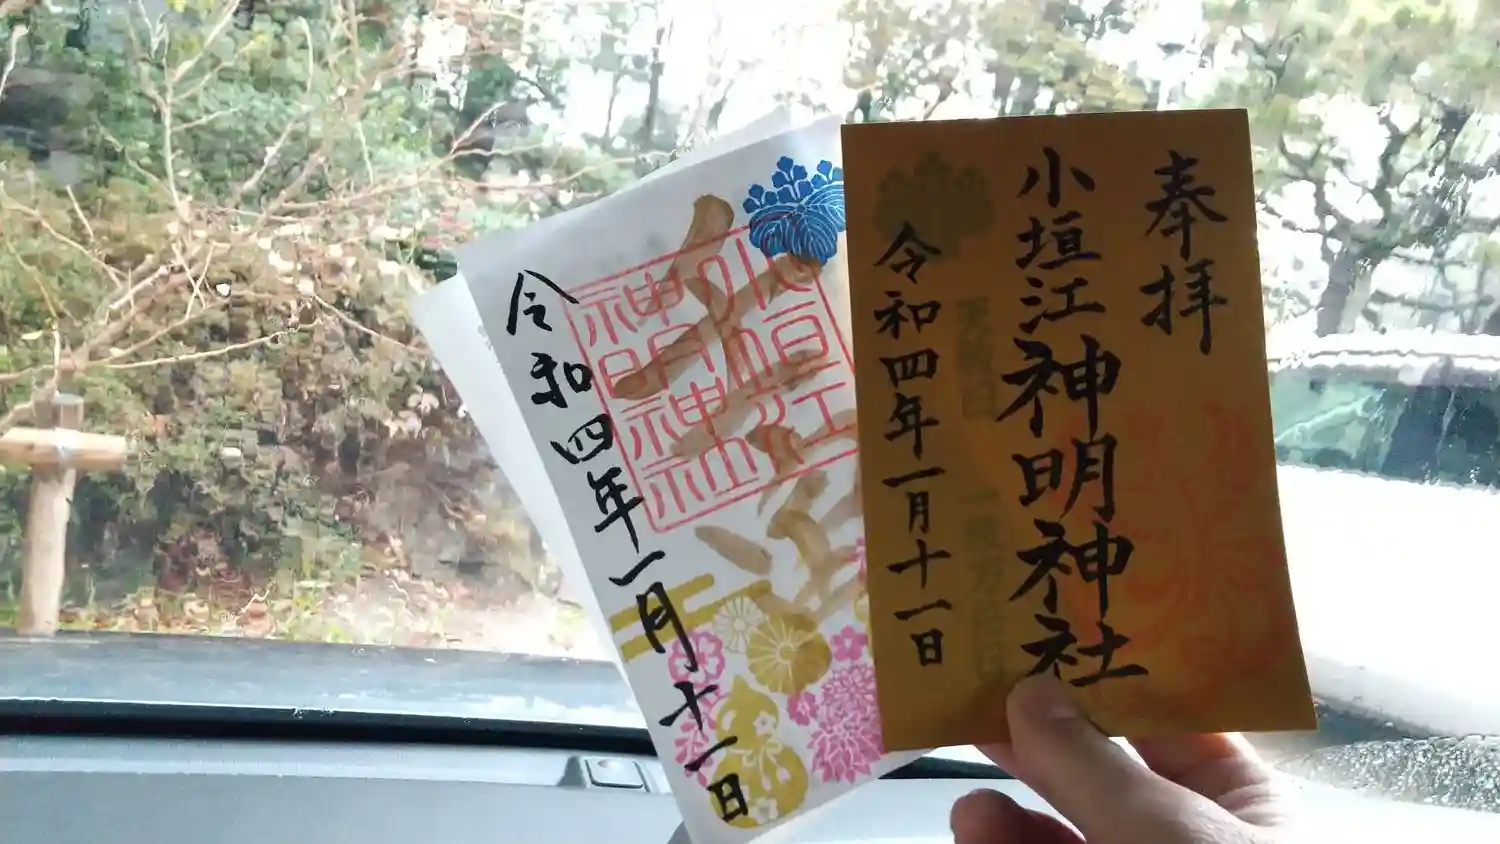 奉拝
小垣江神明神社
令和四年一月十一日
天赦日
一粒万倍日
小垣江
神明神社
令和四年一月十一日